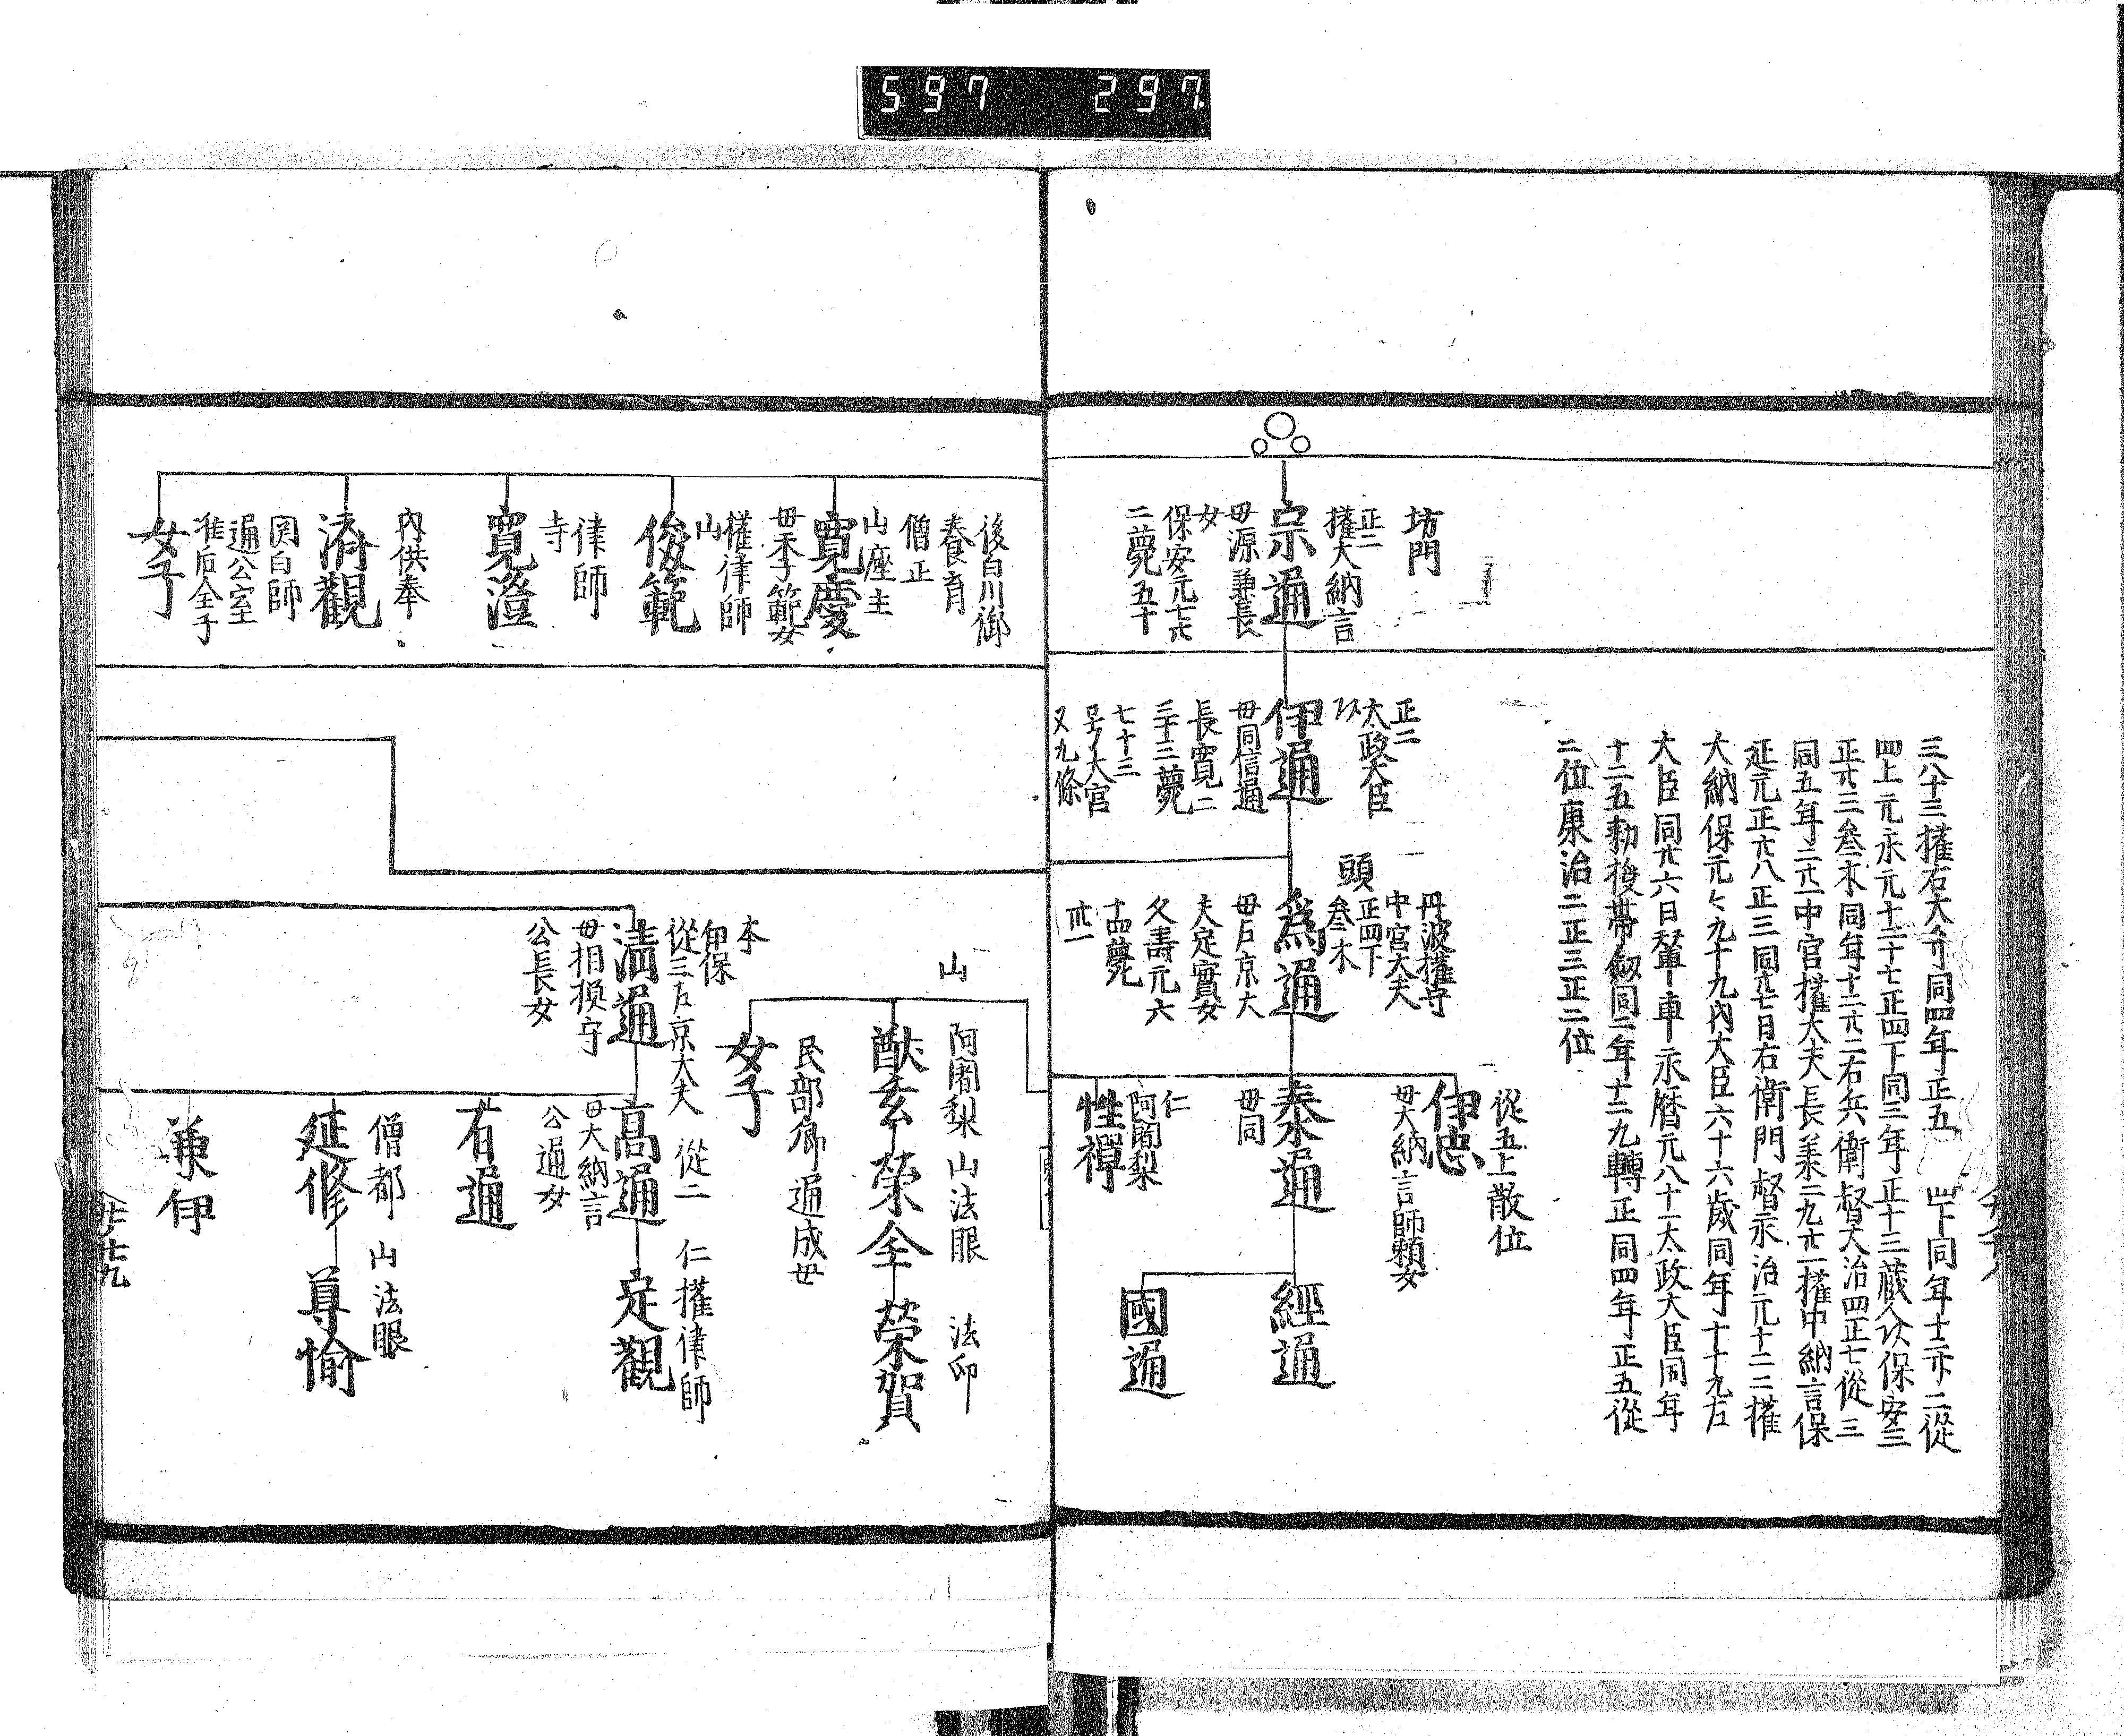 597 297
三八十三權右大弁同四年正五
四下同年十二廿二從
四上元永元十二十七正四下同三年正十三藏人頭保安三
正廿三叁木同年十二廿二右兵衛督大治四正七從三
同五年二廿一中官權大夫長羕二九廿一權中納言保
延元正廿八正三同廿七日右衛門督永治元十二二權
大納保元々九十九內大臣六十六歲同年十十九左
大臣同廿六日輦車永曆元八十一太政大臣同年
十二五勅授帶劔同二年十二九轉正同四年正五從
二位康治二正三正二位
坊門
正二
權大納言
宗通
母源兼長
女
保安元七廿
二薨五十
正二
太政大臣
伊通
母同信通
長寬二
二十三薨
七十三
号大宮
又九條
丹波權守
中宮大夫
正四下
叁木
頭
為通
母左京大
夫定實女
久壽元六
十四薨
廿一
從五上散位
伊忠
母大納言師賴女
泰通
母同
仁
阿闍梨
性禪
經通
國通
後白川御
養育
僧正
山座主
寬慶
母禾子範女
權律師
山
俊範
律師
寺
寬澄
內供奉
濟觀
関白師
通公室
准后全子
女子
山
阿闍梨 山法眼 法印
猷玄 榮全 榮賀
民部卿通成母
女子
本
伊保
從三左京大夫
清通
母相損守
公長女
從二 仁權律師
高通 定觀
母大納言
公通女
有通
僧都 山法眼
延修 尊愉
兼伊